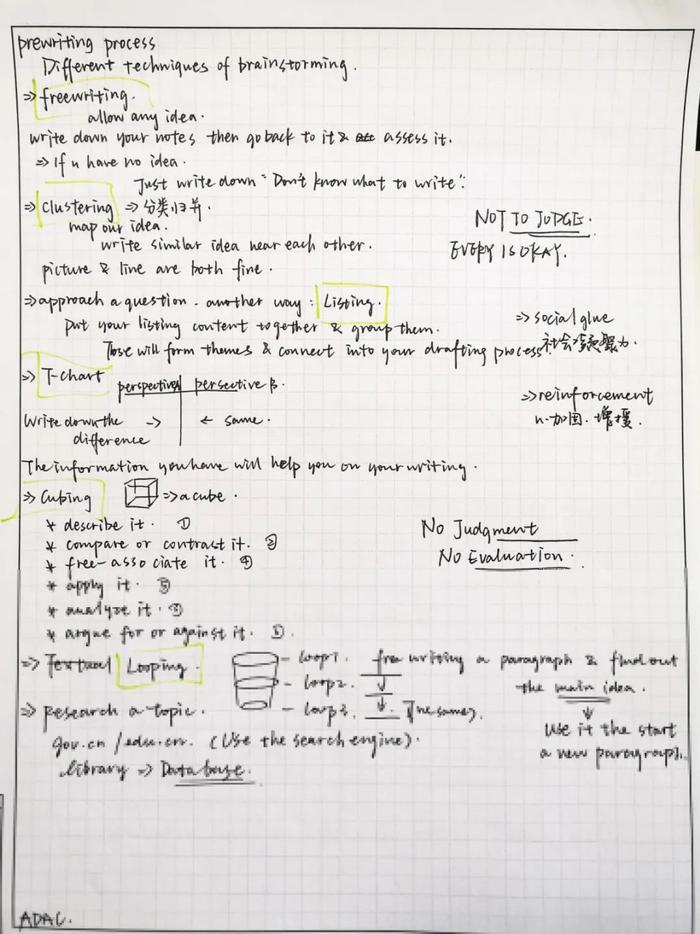 prewriting process
Different techniques of brainstorming.
⇒ freewriting.
allow any idea.
write down your notes then go back to it & assess it.
⇒ If u have no idea.
Just write down "Don't know what to write".
⇒ Clustering ⇒ 分类归并.
map our idea.
write similar idea near each other.
picture & line are both fine.
NOT TO JUDGE.
EVERY IS OKAY.
⇒ approach a question. another way: Listing.
Put your listing content together & group them.
Those will form themes & connect into your drafting process.
⇒ social glue
社会凝聚力.
⇒ T-chart
perspective perspective B.
Write down the → ← same.
difference
⇒ reinforcement
n. 加固. 增援.
The information you have will help you on your writing.
⇒ Cubing ⇒ a cube.
* describe it. ①
* compare or contract it. ②
* free-associate it. ④
* apply it. ⑤
* analyze it. ③
* argue for or against it.
No Judgment
No Evaluation.
⇒ Textual Looping.
loop1. free writing a paragraph & find out
loop2. ↓ the main idea.
loop3. ↓ (the same).
↓
Use it the start
a new paragraph.
⇒ Research a topic.
gov.cn / edu.cn. (Use the search engine).
library ⇒ Database.
ADAC.